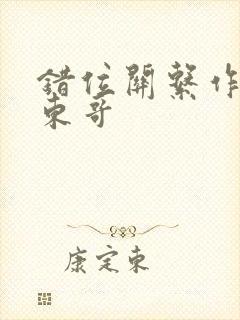 錯位關繫作
東哥
康定東